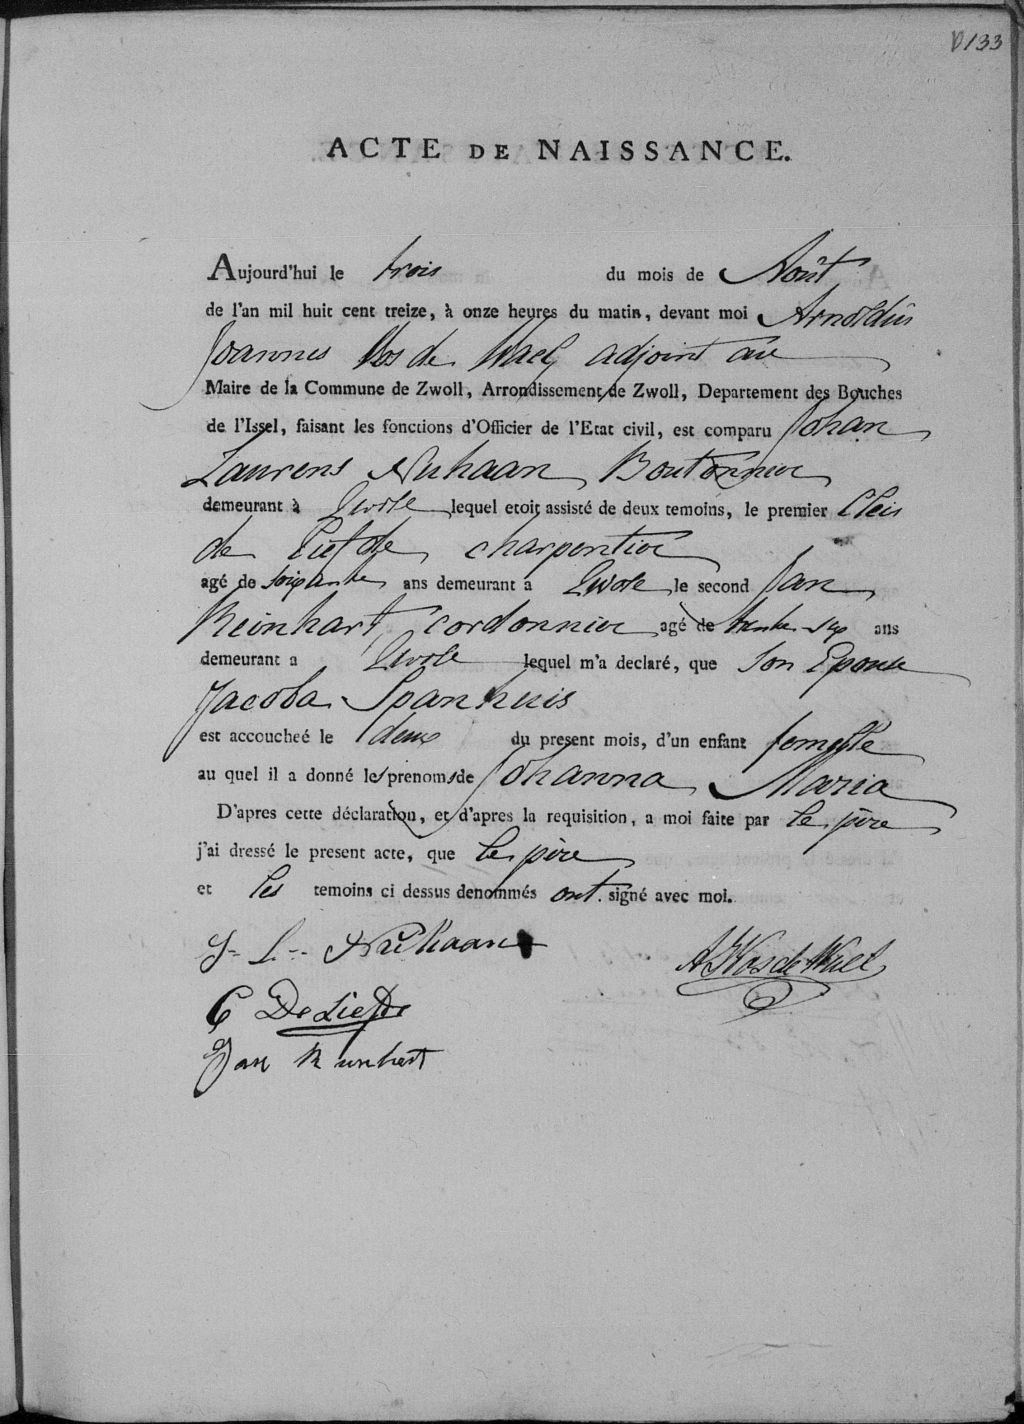 133
ACTE DE NAISSANCE.
Aujourd'hui le trois du mois de Août
de l'an mil huit cent treize, à onze heures du matin, devant moi Arnoldus
Joannes Vos de Wael adjoint au
Maire de la Commune de Zwoll, Arrondissement de Zwoll, Departement des Bouches
de l'Issel, faisant les fonctions d'Officier de l'Etat civil, est comparu Johan
Laurens Nuhaan Boutonnier
demeurant à Zwole lequel etoit assisté de deux temoins, le premier Cleis
de Liefde charpentier
agé de soixante ans demeurant à Zwole le second Jan
Reinhart cordonnier agé de trente six ans
demeurant a Zwole lequel m'a declaré, que son Epouse
Jacoba Spanhuis
est accoucheé le deux du present mois, d'un enfant femelle
au quel il a donné les prenoms de Johanna Maria
D'apres cette déclaration, et d'apres la requisition, a moi faite par le père
j'ai dressé le present acte, que le père
et les temoins ci dessus denommés ont signé avec moi.
J L Nuhaan
A J Vos de Wael
C De Liefde
Jan